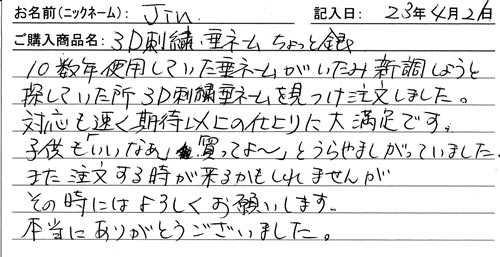 お名前(ニックネーム): Jin 記入日: 23年4月21日
ご購入商品名: 3D刺繍垂ネーム ちょっと銀
10数年使用していた垂ネームがいたみ新調しようと
探していた所3D刺繍垂ネームを見つけ注文しました。
対応も速く期待以上の仕上りに大満足です。
子供も「いいなぁ」買ってよ〜」とうらやましがっていました。
また注文する時が来るかもしれませんが
その時にはよろしくお願いします。
本当にありがとうございました。